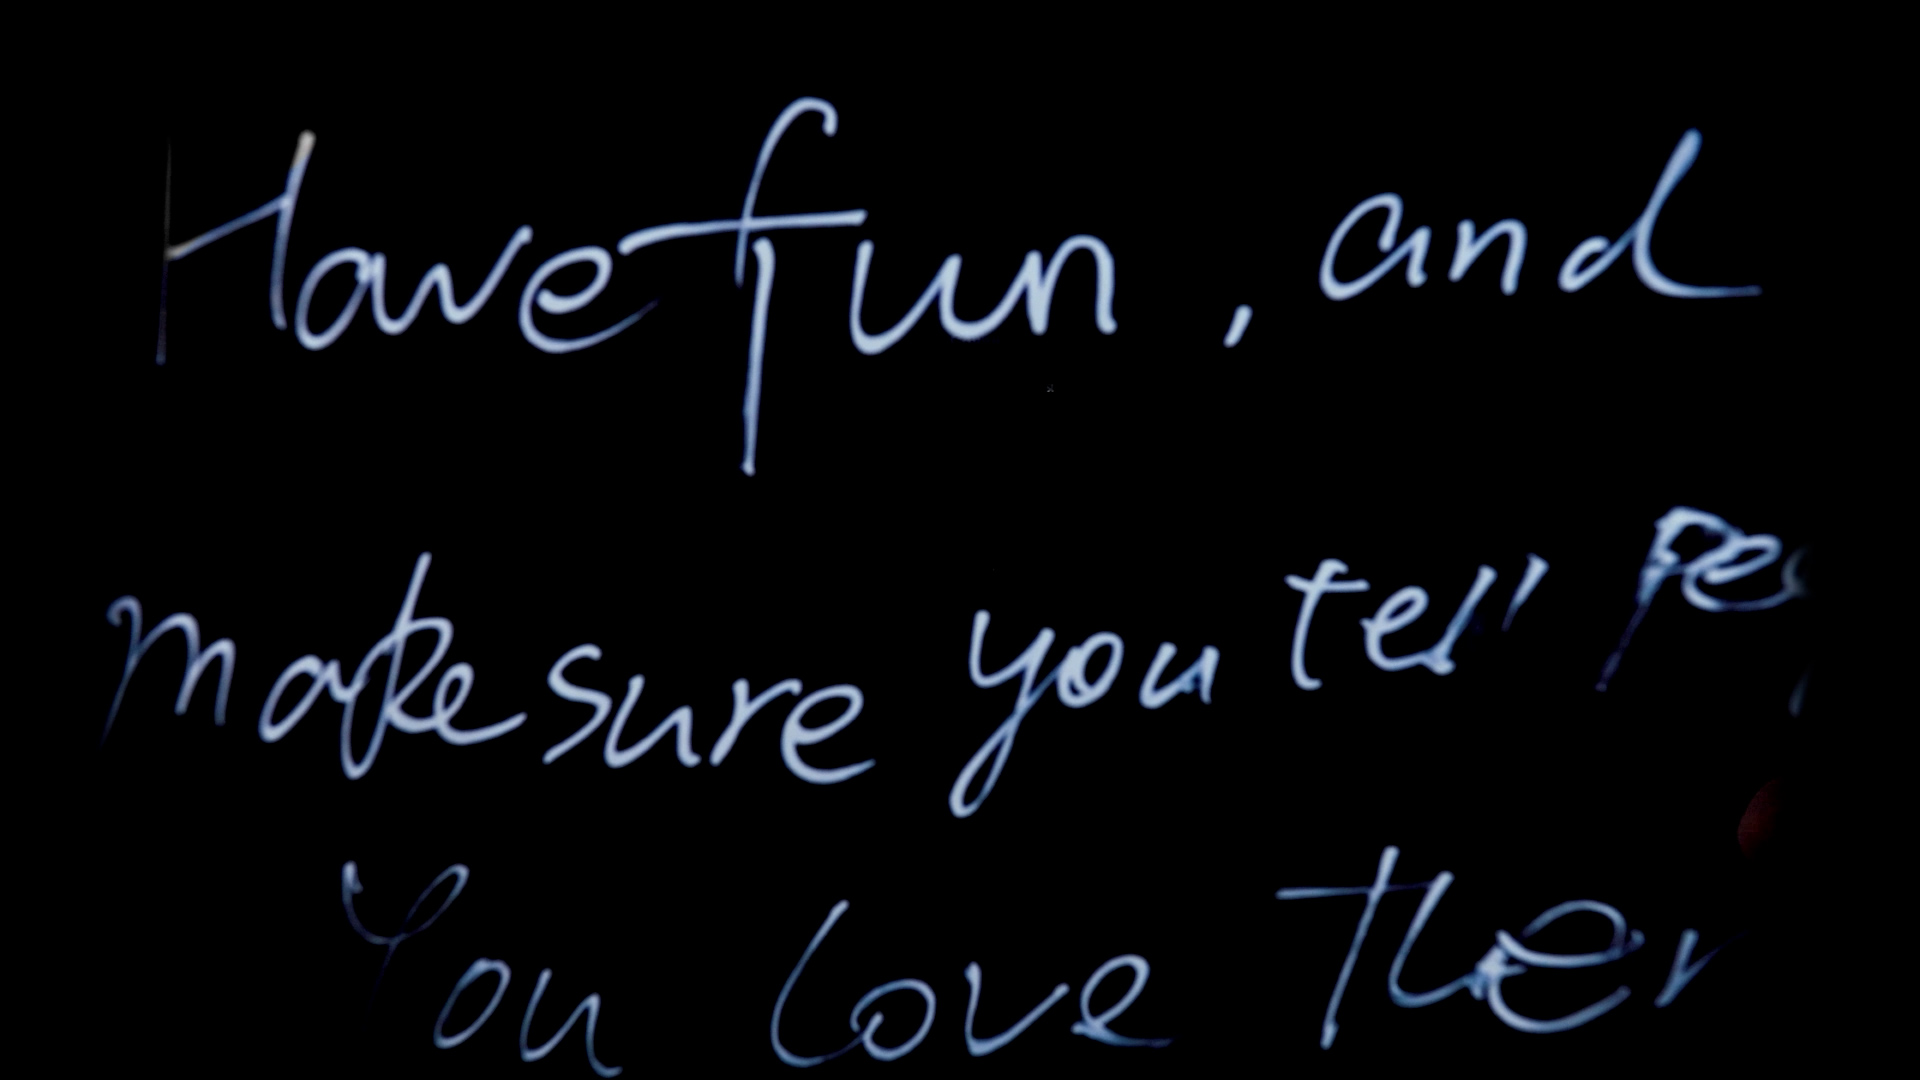 Have fun, and
make sure you tell
You love